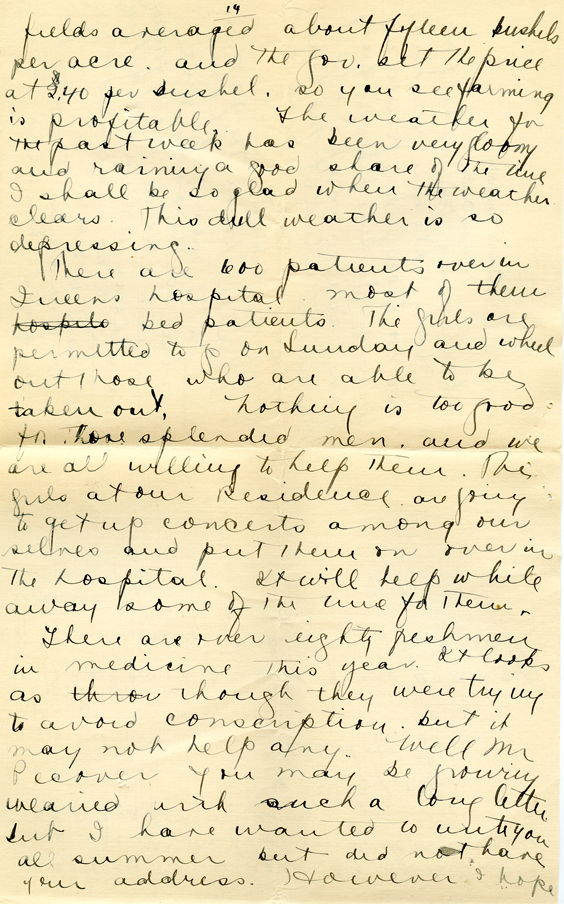 14
fields averaged about fifteen bushels
per acre. and the gov. set the price
at $2.40 per bushel. so you see farming
is profitable. The weather for
the past week has been very gloomy
and raining a good share of the time
I shall be so glad when the weather
clears. This dull weather is so
depressing.
There are 600 patients over in
Queens hospital most of them
hospita bed patients. The girls are
permitted to go on Sunday and wheel
out those who are able to be
taken out, nothing is too good
for those splendid men. and we
are all willing to help them. This
girls at our Residence are going
to get up concerts among our
selves and put them on over in
the hospital. It will help while
away some of the time for them.
There are over eighty freshmen
in medicine this year. It looks
as throu though they were trying
to avoid conscription. but it
may not help any. Well Mr
Pecover you may be growing
wearied with such a long letter
but I have wanted to write you
all summer but did not have
your address. However I hope